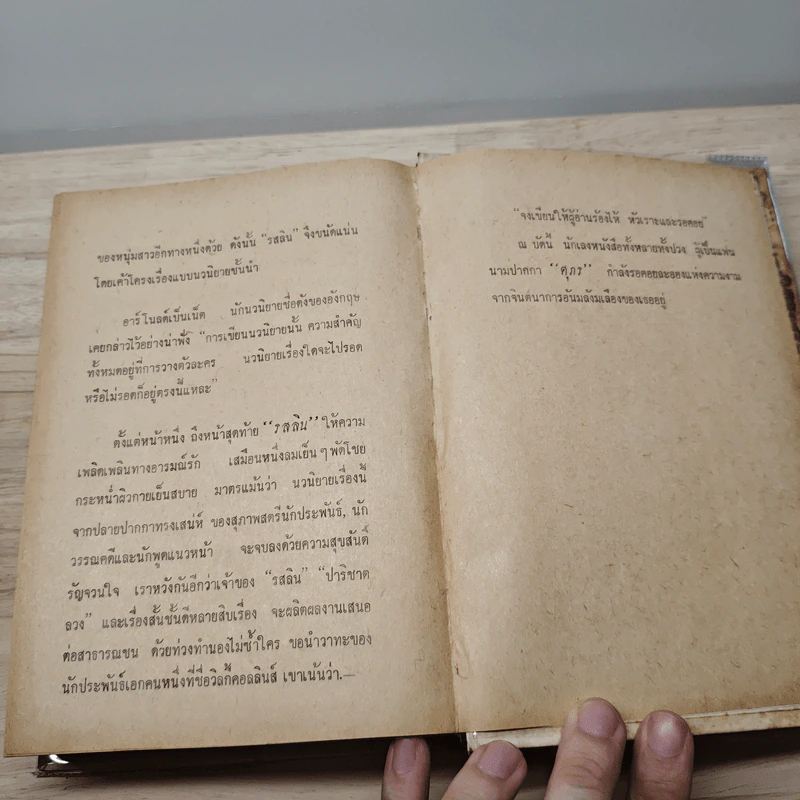 ของหนุ่มสาวอีกทางหนึ่งด้วย ดังนั้น “รสลิน” จึงขนัดแน่น
โดยเค้าโครงเรื่องแบบนวนิยายชั้นนำ
อาร์โนลด์เบ็นเน็ต นักนวนิยายชื่อดังของอังกฤษ
เคยกล่าวไว้อย่างน่าฟัง “การเขียนนวนิยายนั้น ความสำคัญ
ทั้งหมดอยู่ที่การวางตัวละคร นวนิยายเรื่องใดจะไปรอด
หรือไม่รอดก็อยู่ตรงนี้แหละ”
ตั้งแต่หน้าหนึ่ง ถึงหน้าสุดท้าย “รสลิน” ให้ความ
เพลิดเพลินทางอารมณ์รัก เสมือนหนึ่งลมเย็น ๆ พัดโชย
กระหน่ำผิวกายเย็นสบาย มาตรแม้นว่า นวนิยายเรื่องนี้
จากปลายปากกาทรงเสน่ห์ ของสุภาพสตรีนักประพันธ์, นัก
วรรณคดีและนักพูดแนวหน้า จะจบลงด้วยความสุขสันติ์
รัญจวนใจ เราหวังกันอีกว่าเจ้าของ “รสลิน” “ปาริชาต
ลวง” และเรื่องสั้นชั้นดีหลายสิบเรื่อง จะผลิตผลงานเสนอ
ต่อสาธารณชน ด้วยท่วงทำนองไม่ซ้ำใคร ขอนำวาทะของ
นักประพันธ์เอกคนหนึ่งที่ชื่อวิลกี้คอลลินส์ เขาเน้นว่า.—
“จงเขียนให้ผู้อ่านร้องไห้ หัวเราะและรอคอย”
ณ บัดนี้ นักเลงหนังสือทั้งหลายทั้งปวง ผู้เป็นแฟน
นามปากกา “ศุภร” กำลังรอคอยละอองแห่งความงาม
จากจินตนาการอันมลังมเลืองของเธออยู่